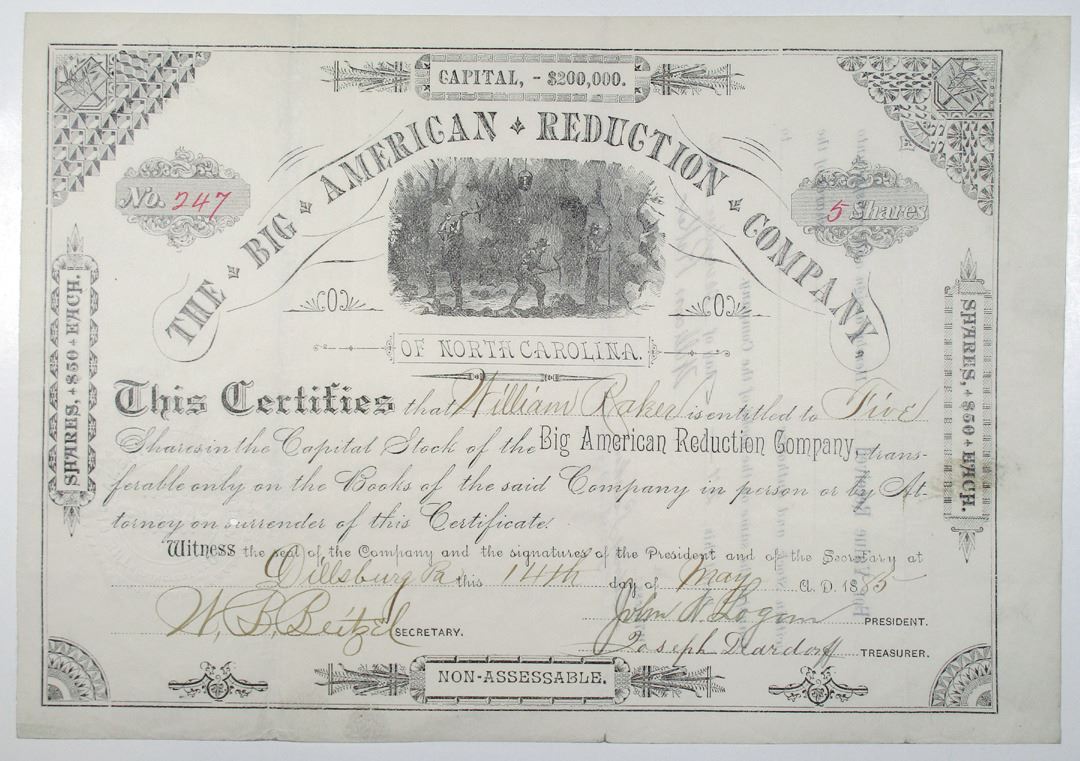 CAPITAL, - $200,000.
THE BIG AMERICAN REDUCTION COMPANY
No. 247
5 Shares
SHARES, $50 EACH.
SHARES, $50 EACH.
OF NORTH CAROLINA.
This Certifies that William Raker is entitled to Five
Shares in the Capital Stock of the Big American Reduction Company, trans-
ferable only on the Books of the said Company in person or by At-
torney on surrender of this Certificate.
Witness the seal of the Company and the signatures of the President and of the Secretary at
Dillsburg Pa this 14th day of May A.D. 1885
W. B. Beitzel SECRETARY.
John N. Logan PRESIDENT.
Joseph Deardorff TREASURER.
NON-ASSESSABLE.